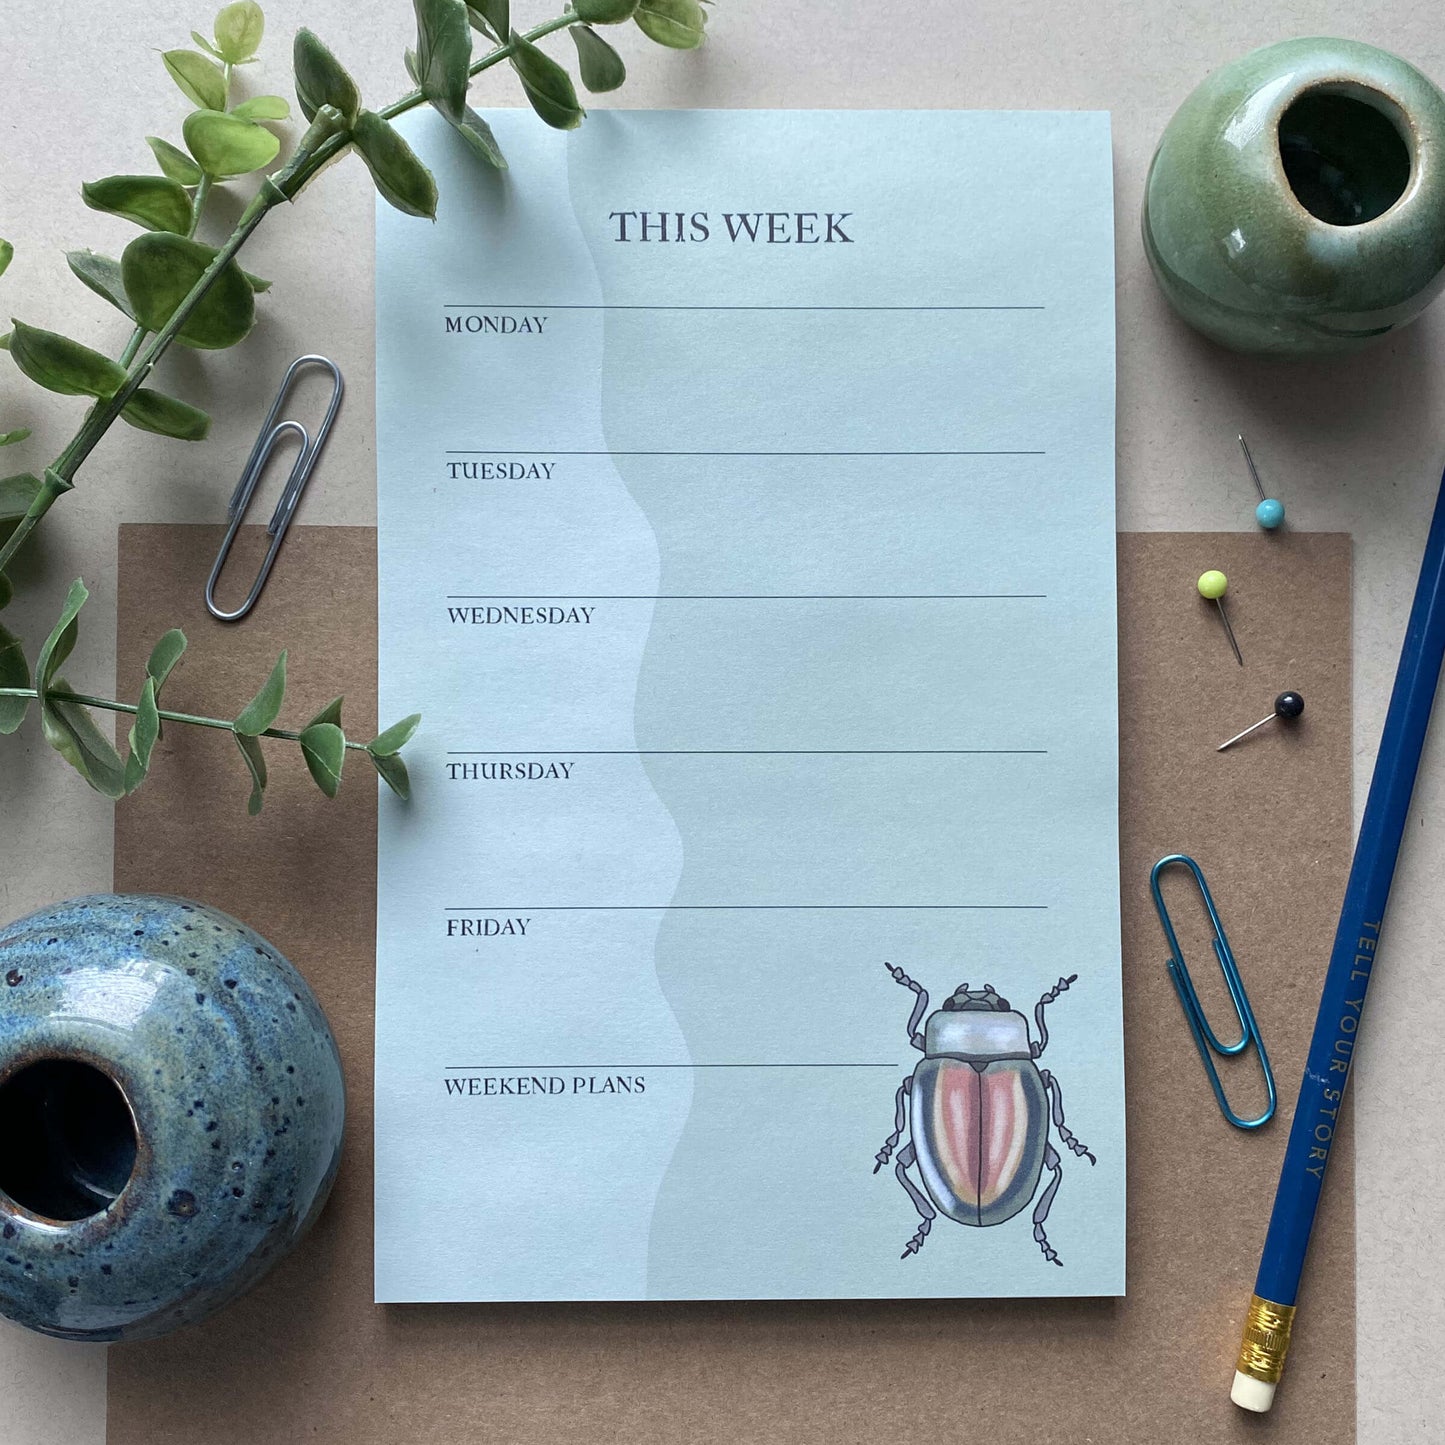 THIS WEEK
MONDAY
TUESDAY
WEDNESDAY
THURSDAY
FRIDAY
WEEKEND PLANS
TELL YOUR STORY